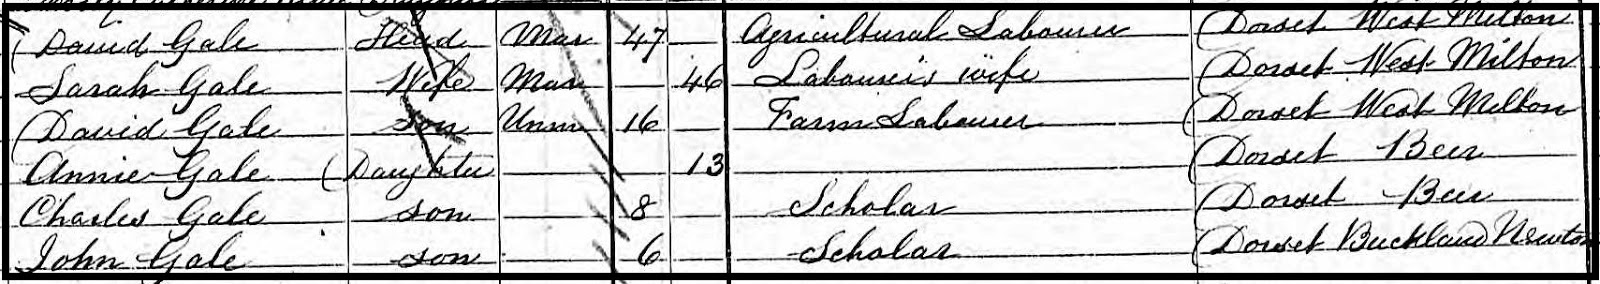 David Gale Head Mar 47 Agricultural Labourer Dorset West Milton
Sarah Gale Wife Mar 46 Labourer's wife Dorset West Milton
David Gale son Unm 16 Farm Labourer Dorset West Milton
Annie Gale Daughter 13 Dorset Beer
Charles Gale son 8 Scholar Dorset Beer
John Gale son 6 Scholar Dorset Buckland Newton